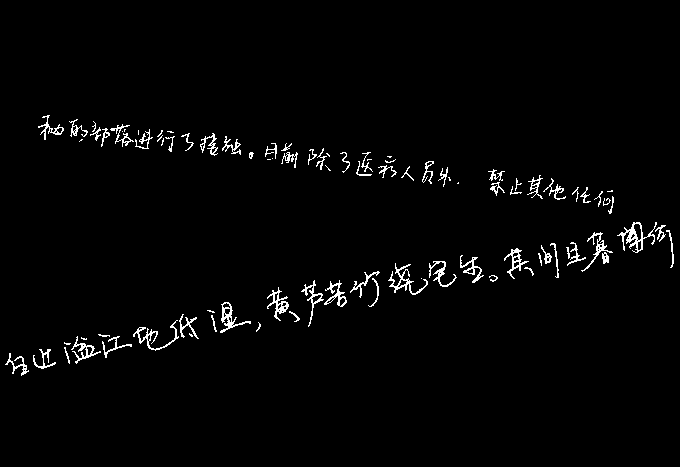 秘的部落进行了接触。目前除了医疗人员外，禁止其他任何
住近湓江地低湿，黄芦苦竹绕宅生。其间旦暮闻何